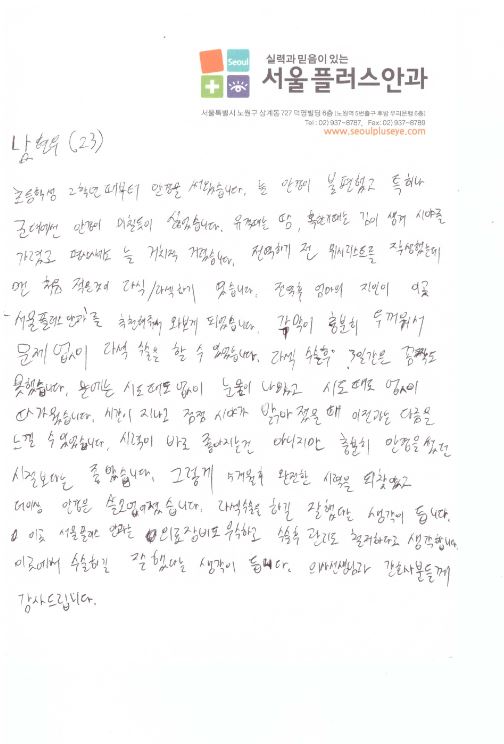 Seoul
실력과 믿음이 있는
서울플러스안과
서울특별시 노원구 상계동 727 덕영빌딩 6층 (노원역 5번출구 후방 우리은행 6층)
Tel : 02) 937~8787, Fax : 02) 937~8789
www.seoulpluseye.com
남현우 (23)
초등학생 2학년때부터 안경을 써왔습니다. 늘 안경이 불편했고 특히나
군대에선 안경이 싫었습니다. 땀, 혹한기때는 김이 생겨 시야를
가렸고 늘 거치적 거렸습니다. 전역하기 전 위시리스트를 작성했는데
맨 처음 적은것이 라식/라섹하기 였습니다. 전역후 엄마의 지인이 이곳
서울플러스안과를 추천해주셔 와보게 되었습니다. 각막이 충분히 두꺼워서
문제 없이 라섹 수술을 할 수 있었습니다. 라섹 수술후 3일간은 꼼짝도
못했습니다. 눈에는 시도때도 없이 눈물이 나왔고 시도때도 없이
시간이 지나고 점점 시야가 밝아 졌을때 이전과는 다름을
느낄 수 있었습니다. 시력이 바로 좋아지는건 아니지만 충분히 안경을 썼던
시절보다는 좋았습니다. 그렇게 5개월후 완전한 시력을 되찾았고
더이상 안경은 쓸모없어졌습니다. 라섹수술을 하길 잘했다는 생각이 듭니다.
이곳 서울플러스 안과는 의료장비도 우수하고 수술후 관리도 철저하다고 생각합니다.
이곳에서 수술하길 잘 했다는 생각이 듭니다. 의사선생님과 간호사분들께
감사드립니다.